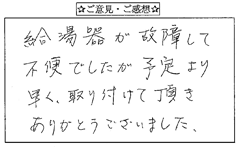 ☆ご意見・ご感想☆
給湯器が故障して
不便でしたが予定より
早く、取り付けて頂き
ありがとうございました、